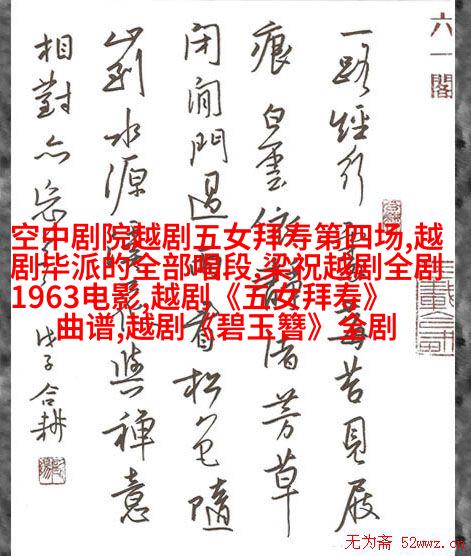 六一閣
一路經行苔見屐
痕白雲依渚芳草
閉閒門過雨看松色隨
山到水源與禪意
相對亦忘
戊子合耕
空中剧院越剧五女拜寿第四场,越
剧毕派的全部唱段,梁祝越剧全剧
1963电影,越剧《五女拜寿》
曲谱,越剧《碧玉簪》全剧
无为斋 52wwz.cn